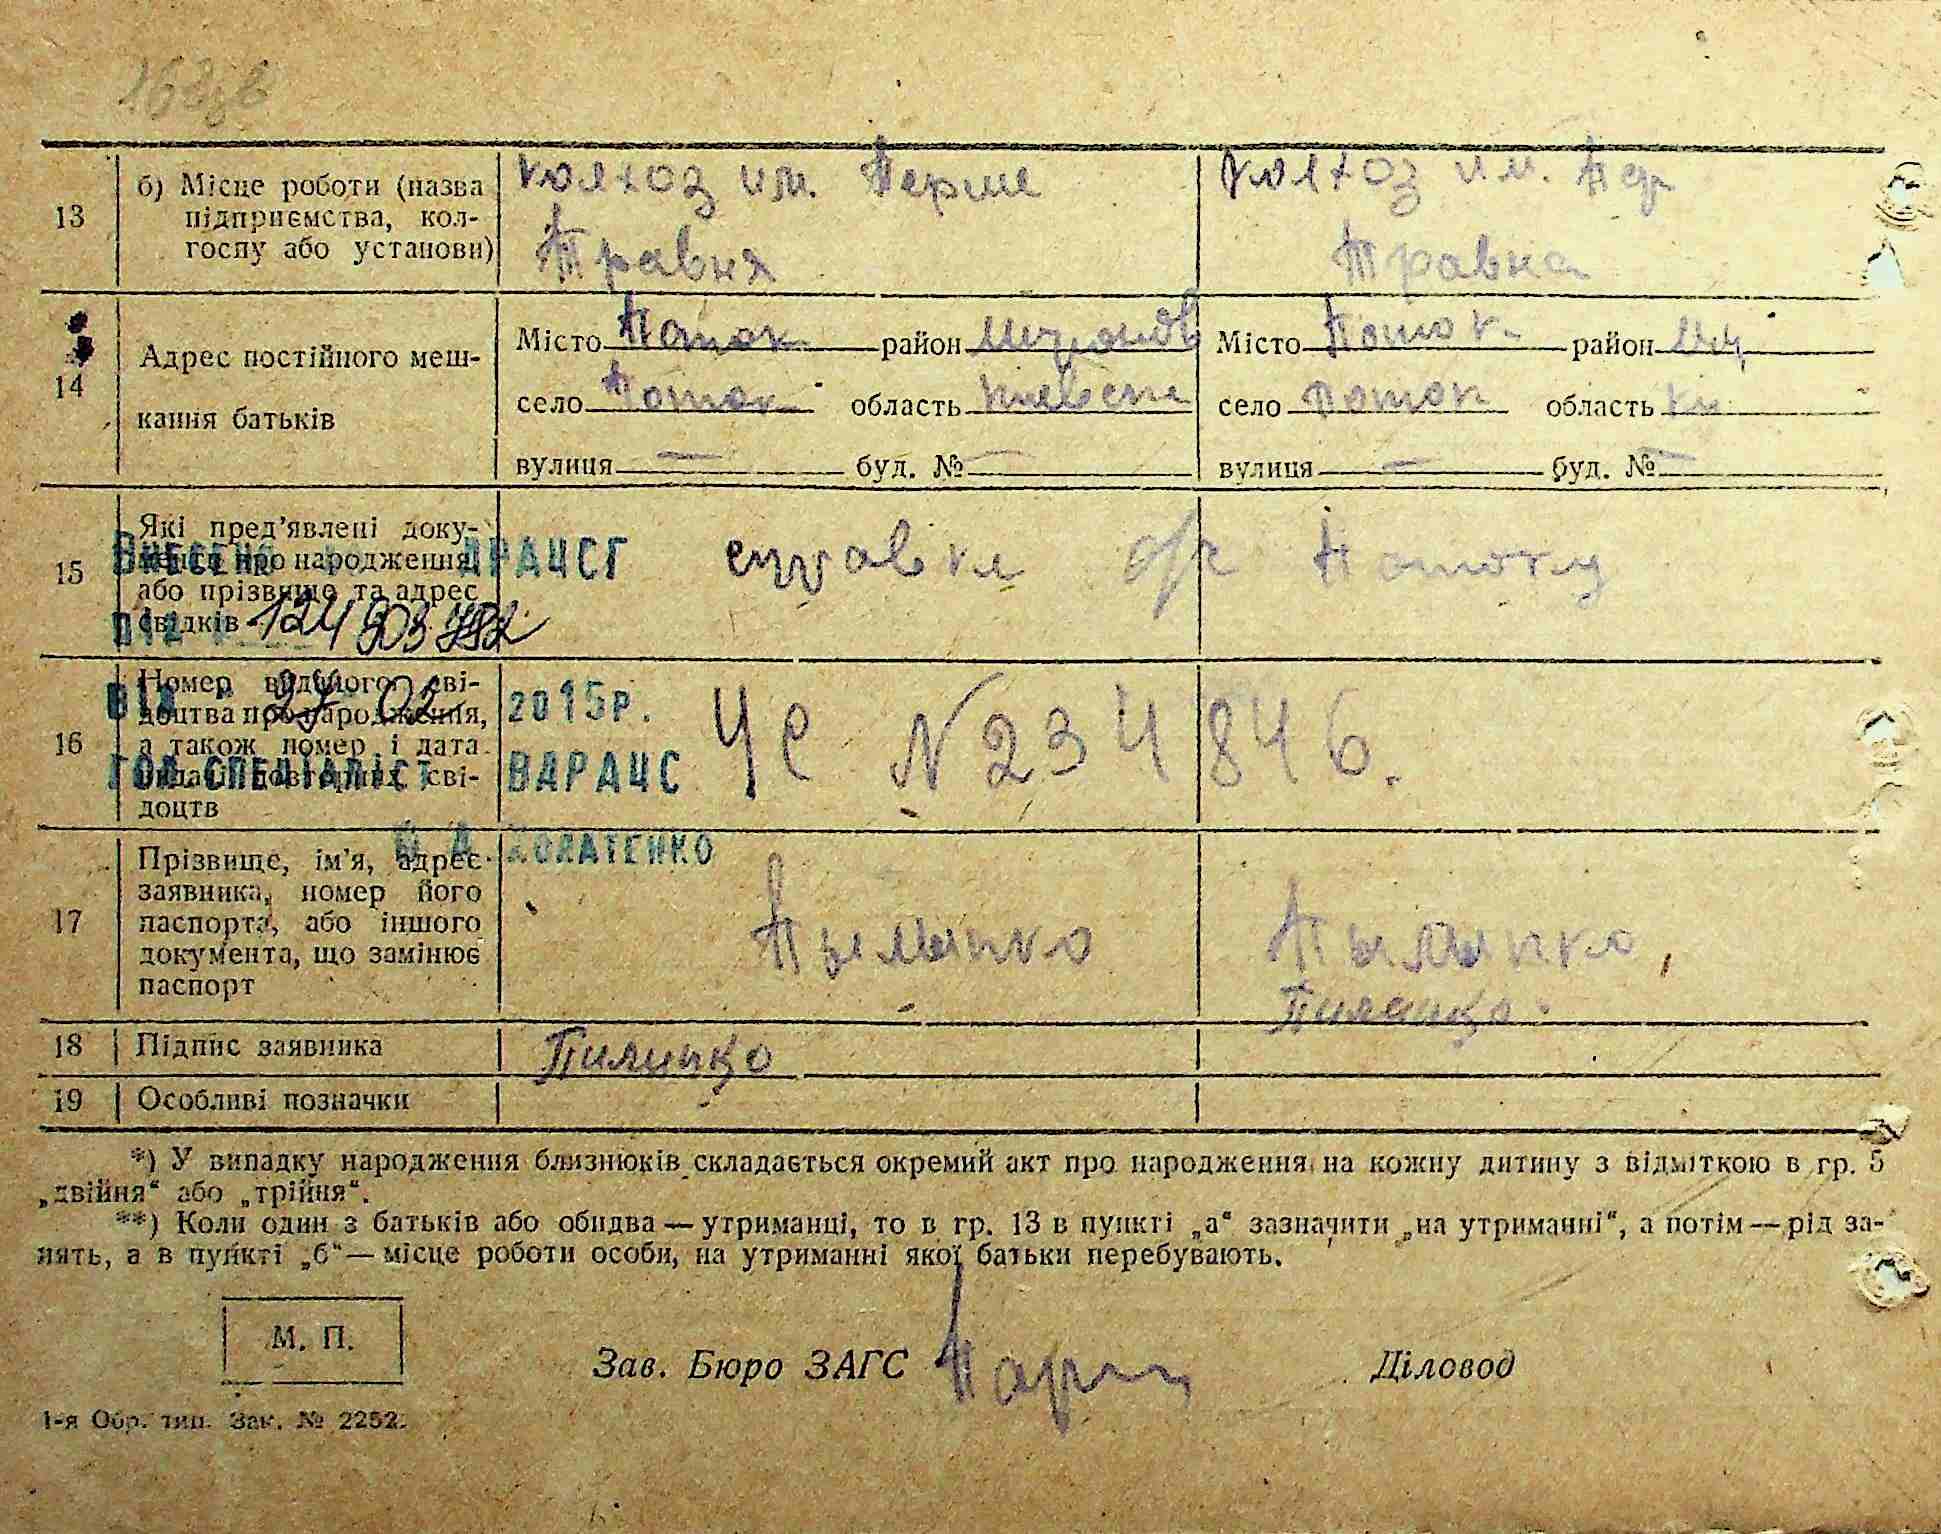 колхоз им. Перше
колхоз им. Пер
13
б) Місце роботи (назва
підприємства, кол-
госпу або установи)
Травня
Травна
14
Адрес постійного меш-
кання батьків
Місто Поток район Миронов
Місто Поток район Ми
село Поток область Киевск
село Поток область Ки
вулиця — буд. № —
вулиця — буд. № —
15
Які пред'явлені доку-
менти про народження
або прізвище та адрес
свідків
ВНЕСЕНО ДРАЦСГ
справка с/р Потоку
16
Номер виданого сві-
доцтва про народження,
а також номер і дата
видачі повторних сві-
доцтв
ВІД 27 02 2015р.
ГОЛ СПЕЦІАЛІСТ ВДРАЦС
ЧС № 234846.
17
Прізвище, ім'я, адрес
заявника, номер його
паспорта, або іншого
документа, що замінює
паспорт
Пылыпко
Пылыпко
18
Підпис заявника
Пилипко
19
Особливі позначки
*) У випадку народження близнюків складається окремий акт про народження на кожну дитину з відміткою в гр. 5
„двійня“ або „трійня“.
**) Коли один з батьків або обидва — утриманці, то в гр. 13 в пункті „а“ зазначити „на утриманні“, а потім — рід за-
нять, а в пункті „б“ — місце роботи особи, на утриманні якої батьки перебувають.
М. П.
Зав. Бюро ЗАГС
Діловод
1-я Обр. тип. Зак. № 2252.